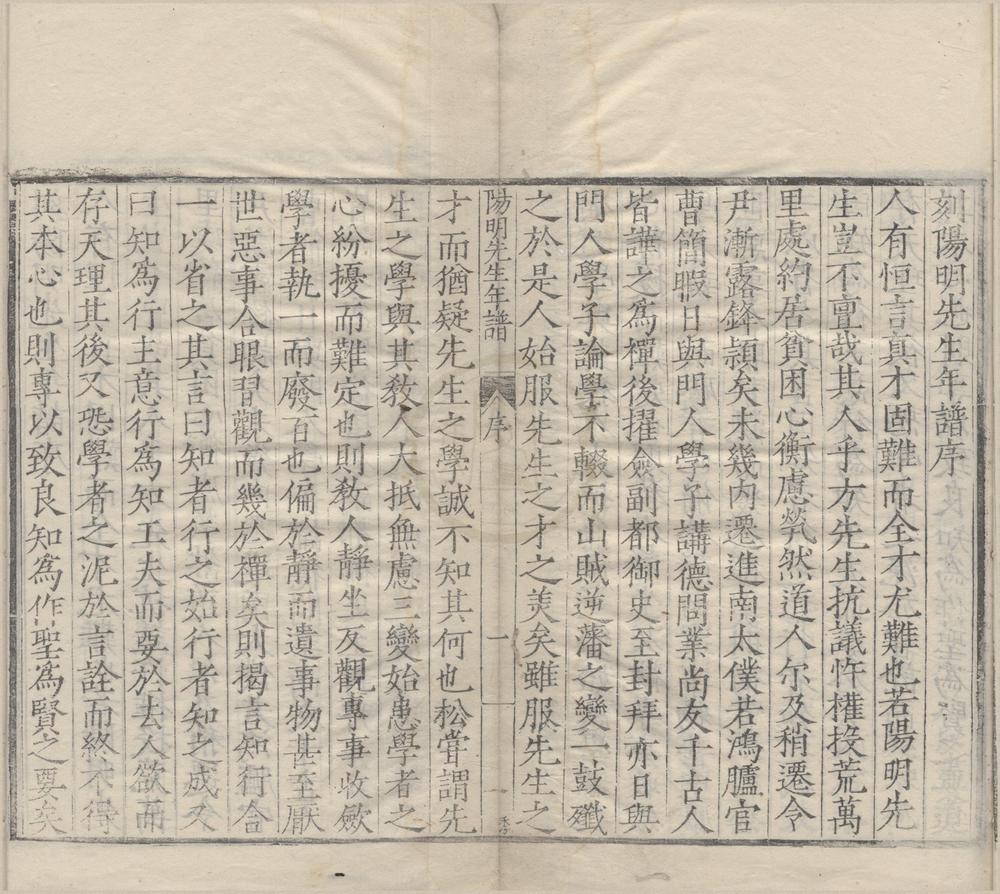 刻陽明先生年譜序
人有恒言真才固難而全才尤難也若陽明先
生豈不亶哉其人乎方先生抗議忤權投荒萬
里處約居貧困心衡慮煢然道人尔及稍遷令
尹漸露鋒頴矣未幾内遷進南太僕若鴻臚官
曹簡暇日與門人學子講德問業尚友千古人
皆譁之為禪後擢僉副都御史至封拜亦日與
門人學子論學不輟而山賊逆藩之變一鼓殲
之於是人始服先生之才之美矣雖服先生之
陽明先生年譜 序 一 秀
才而猶疑先生之學誠不知其何也松嘗謂先
生之學與其教人大抵無慮三變始患學者之
心紛擾而難定也則教人靜坐反觀專事收斂
學者執一而廢百也偏於靜而遺事物甚至厭
世惡事合眼習觀而幾於禪矣則揭言知行合
一以省之其言曰知者行之始行者知之成又
曰知為行主意行為知工夫而要於去人欲而
存天理其後又恐學者之泥於言詮而終不得
其本心也則專以致良知為作聖為賢之要矣